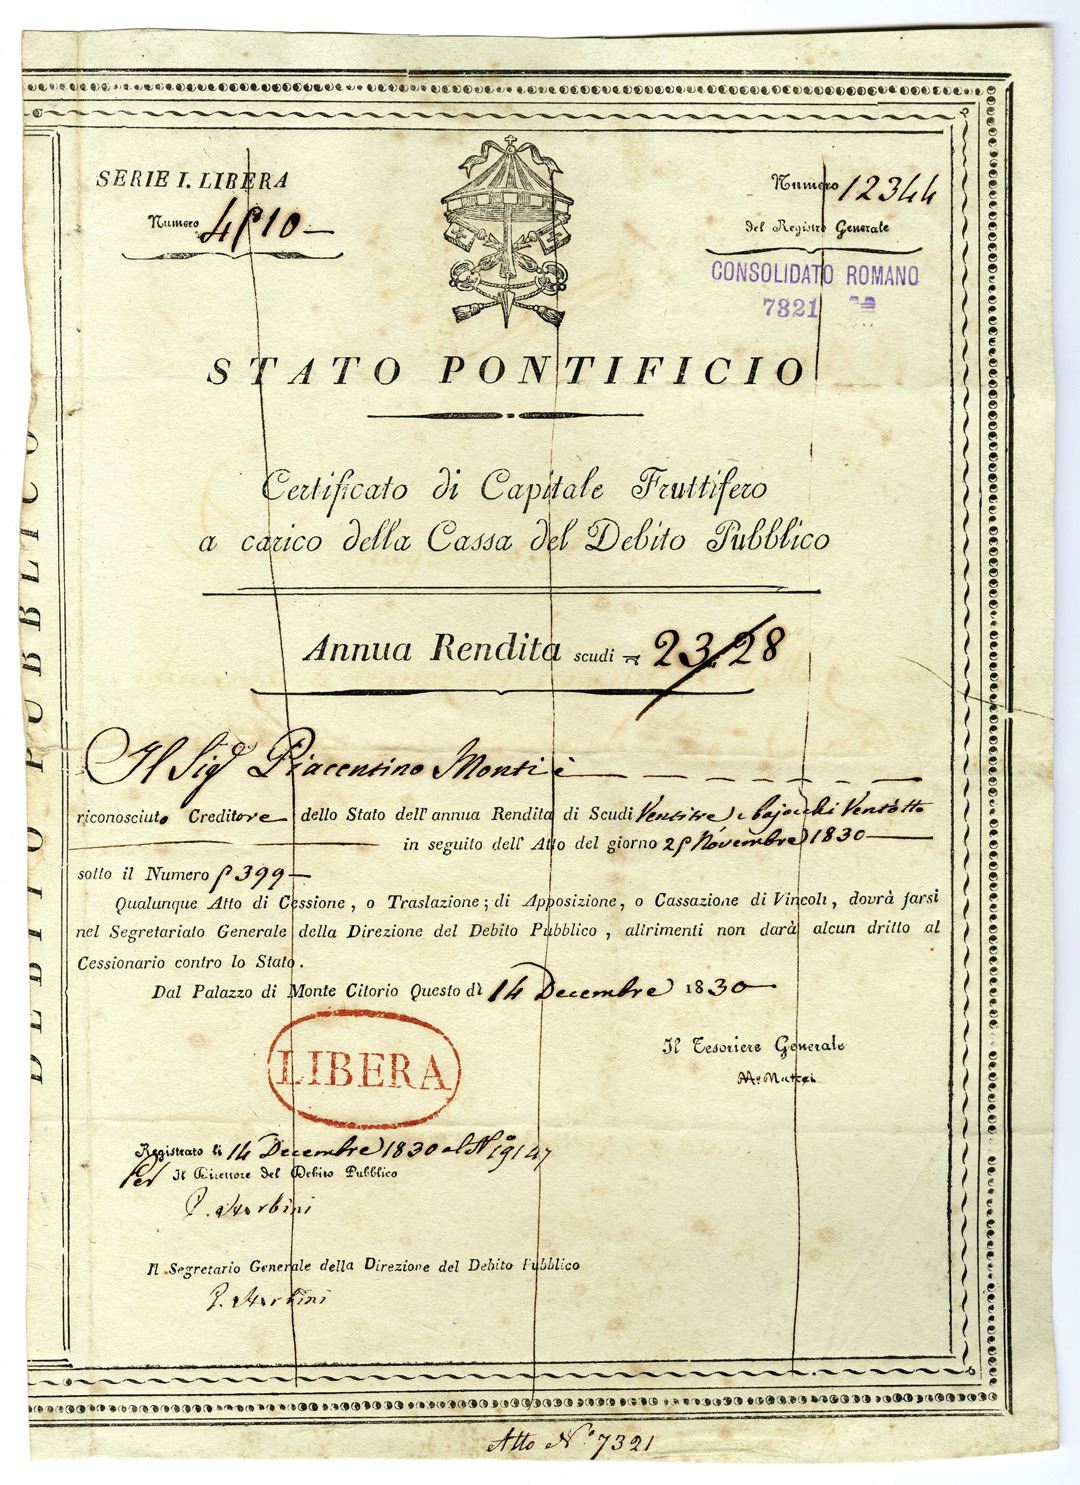 SERIE I. LIBERA
Numero 4510
Numero 12344
del Registro Generale
CONSOLIDATO ROMANO
7321
STATO PONTIFICIO
Certificato di Capitale Fruttifero
a carico della Cassa del Debito Pubblico
Annua Rendita scudi 23/28
Il Sigr Piacentino Monti è
riconosciuto Creditore dello Stato dell'annua Rendita di Scudi Ventitre e bajocchi Ventotto
in seguito dell' Atto del giorno 25 Novembre 1830
sotto il Numero 5399
Qualunque Atto di Cessione, o Traslazione; di Apposizione, o Cassazione di Vincoli, dovrà farsi
nel Segretariato Generale della Direzione del Debito Pubblico, altrimenti non darà alcun dritto al
Cessionario contro lo Stato.
Dal Palazzo di Monte Citorio Questo dì 14 Decembre 1830
Il Tesoriere Generale
Mattei
LIBERA
Registrato li 14 Decembre 1830 al No 19147
Per Il Direttore del Debito Pubblico
Il Segretario Generale della Direzione del Debito Pubblico
Atto No 7321
DEBITO PUBBLICO